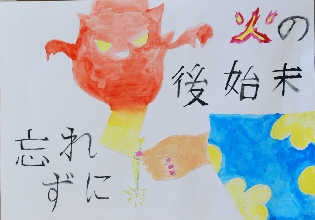 火の
後始末
忘れ
ずに